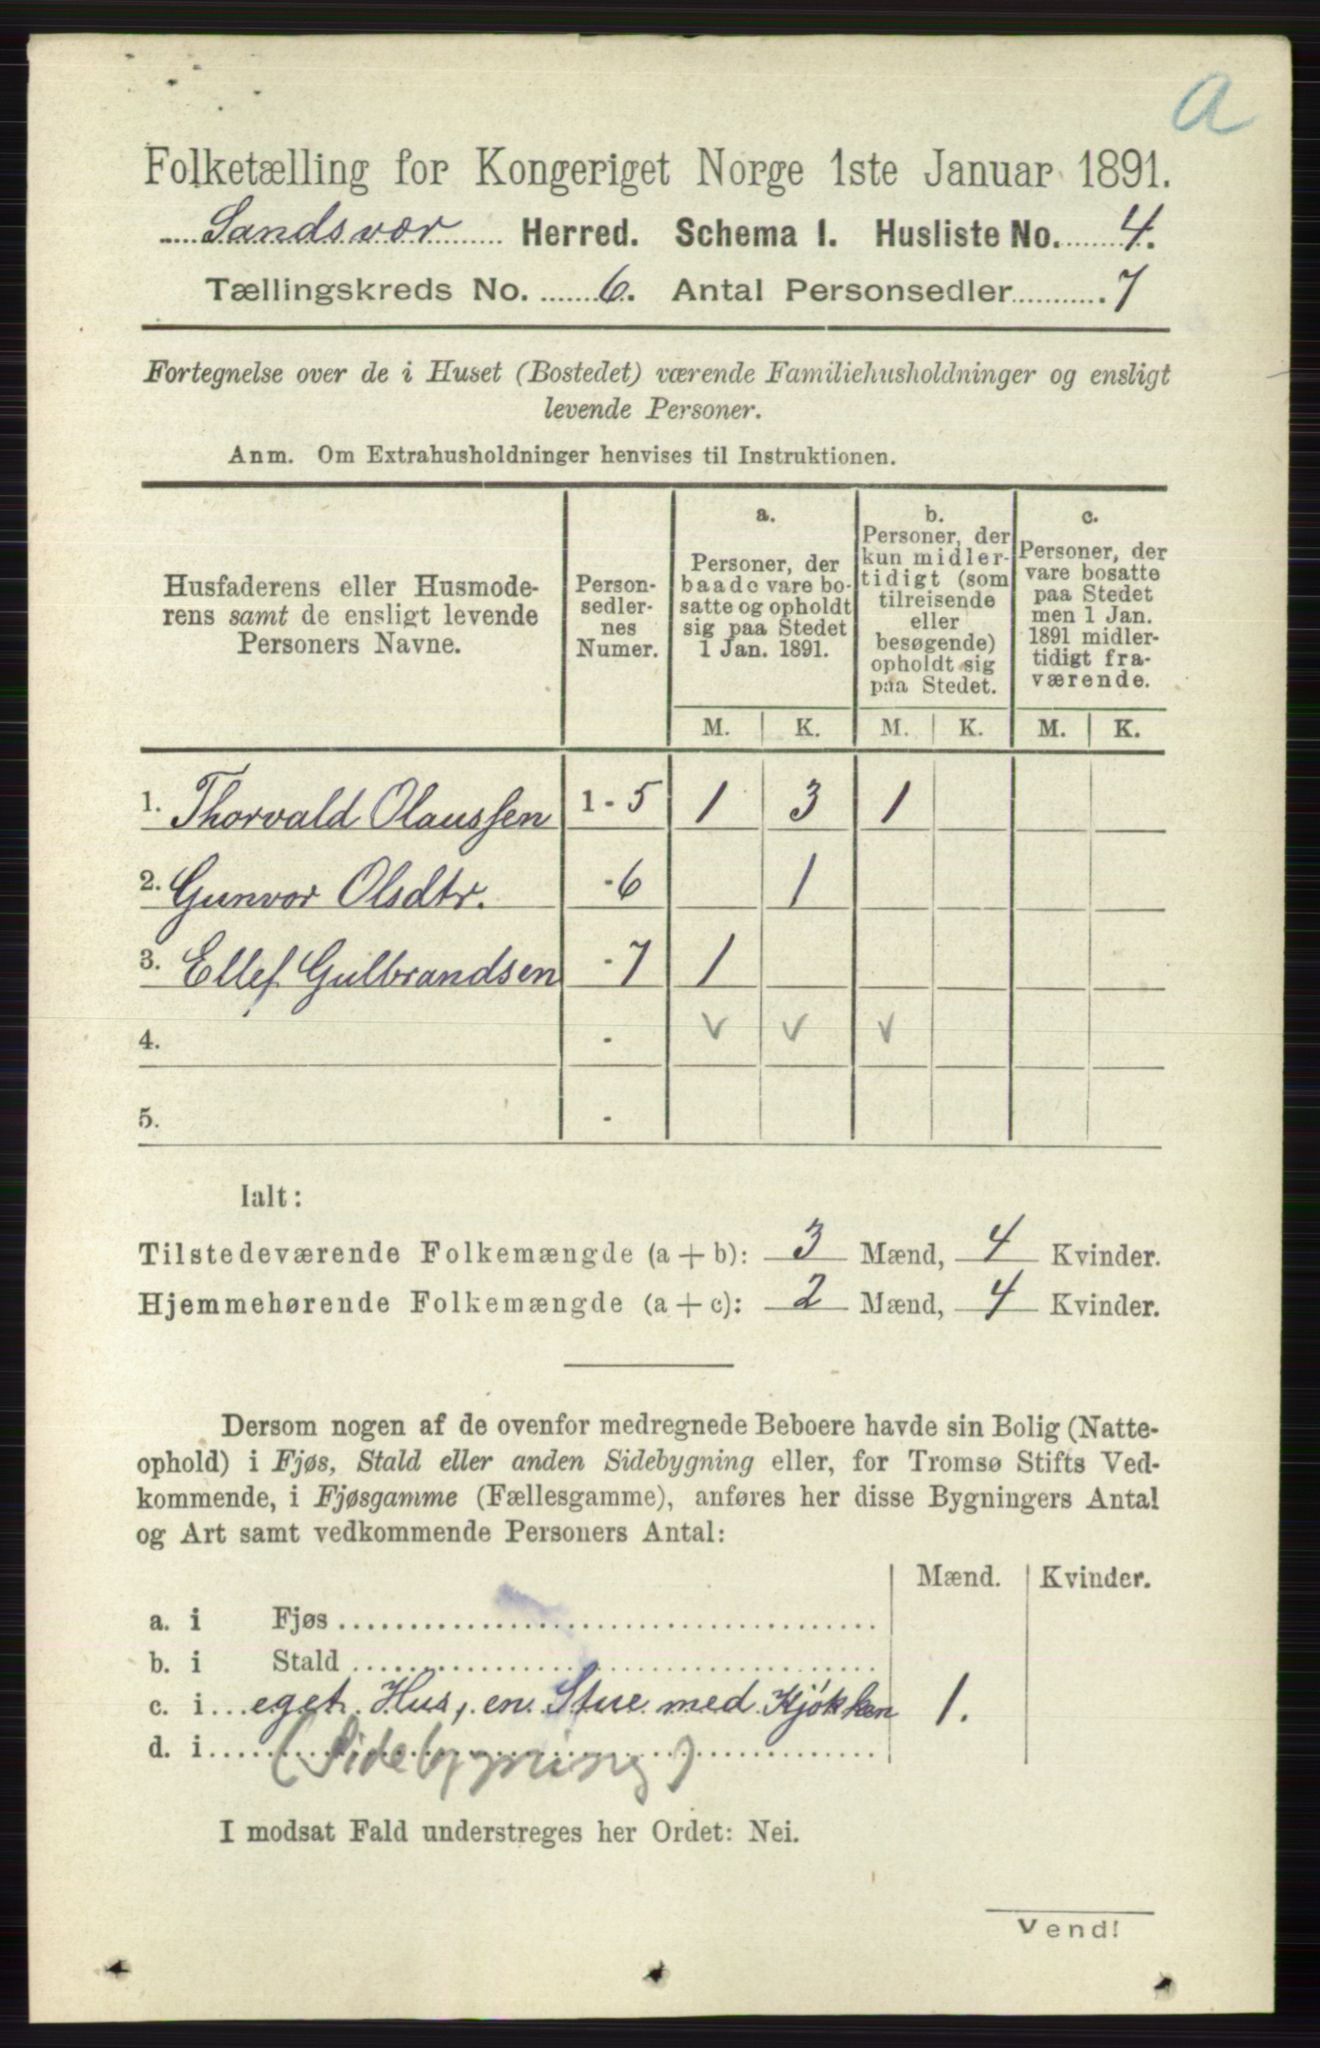 a
Folketælling for Kongeriget Norge 1ste Januar 1891.
Sandsvær Herred. Schema I. Husliste No. 4.
Tællingskreds No. 6. Antal Personsedler 7
Fortegnelse over de i Huset (Bostedet) værende Familiehusholdninger og ensligt
levende Personer.
Anm. Om Extrahusholdninger henvises til Instruktionen.
Husfaderens eller Husmode-
rens samt de ensligt levende
Personers Navne.
Person-
sedler-
nes
Numer.
a.
Personer, der
baade vare bo-
satte og opholdt
sig paa Stedet
1 Jan. 1891.
b.
Personer, der
kun midler-
tidigt (som
tilreisende
eller
besøgende)
opholdt sig
paa Stedet.
c.
Personer, der
vare bosatte
paa Stedet
men 1 Jan.
1891 midler-
tidigt fra-
værende.
M. K. M. K. M. K.
1. Thorvald Olaussen 1 - 5 1 3 1
2. Gunvor Olsdtr. - 6 1
3. Ellef Gulbrandsen - 7 1
4. - v v v
5. -
Ialt:
Tilstedeværende Folkemængde (a + b): 3 Mænd, 4 Kvinder.
Hjemmehørende Folkemængde (a + c): 2 Mænd, 4 Kvinder.
Dersom nogen af de ovenfor medregnede Beboere havde sin Bolig (Natte-
ophold) i Fjøs, Stald eller anden Sidebygning eller, for Tromsø Stifts Ved-
kommende, i Fjøsgamme (Fællesgamme), anføres her disse Bygningers Antal
og Art samt vedkommende Personers Antal:
Mænd. Kvinder.
a. i Fjøs
b. i Stald
c. i eget Hus, en Stue med Kjøkken 1.
d. i (Sidebygning)
I modsat Fald understreges her Ordet: Nei.
Vend!